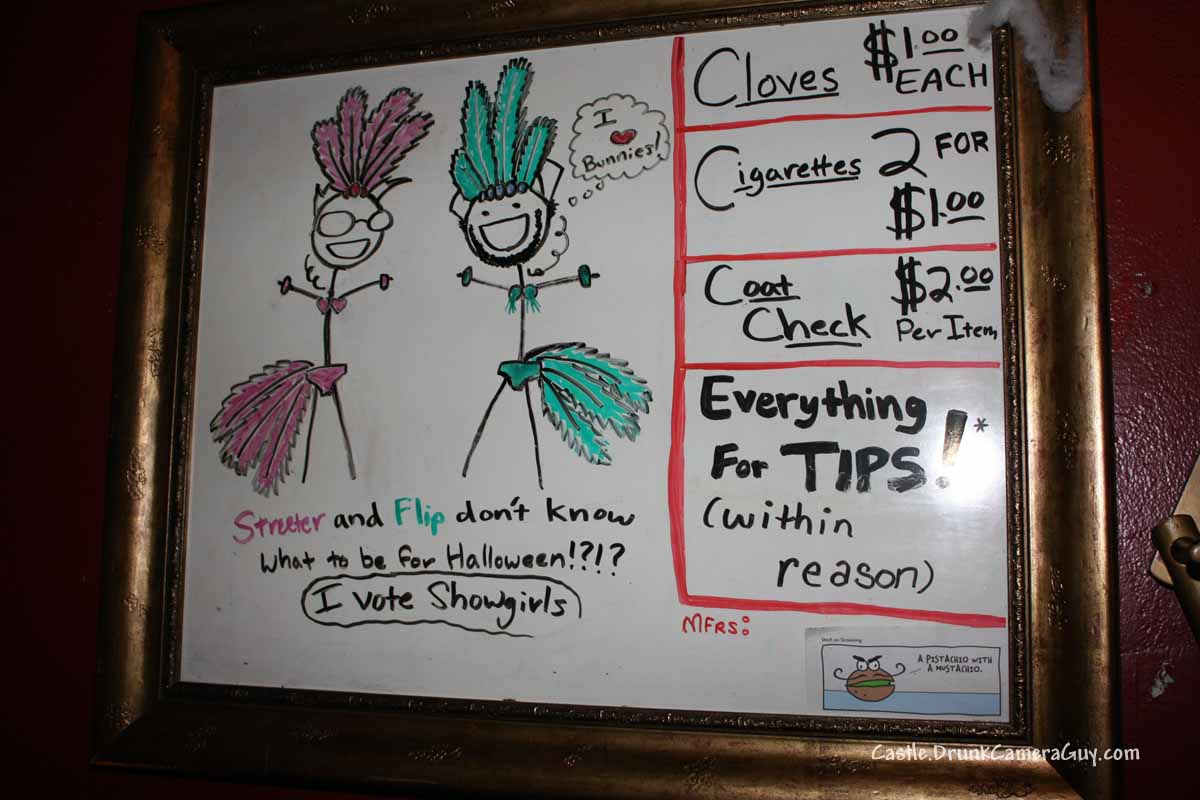 I
Bunnies!
Streeter and Flip don't know
what to be for Halloween!?!?
I vote Showgirls
Cloves $1.00
EACH
Cigarettes 2 FOR
$1.00
Coat $2.00
Check Per Item
Everything
For TIPS!*
(within
reason)
MFRS:
A PISTACHIO WITH
A MUSTACHIO.
Castle.DrunkCameraGuy.com